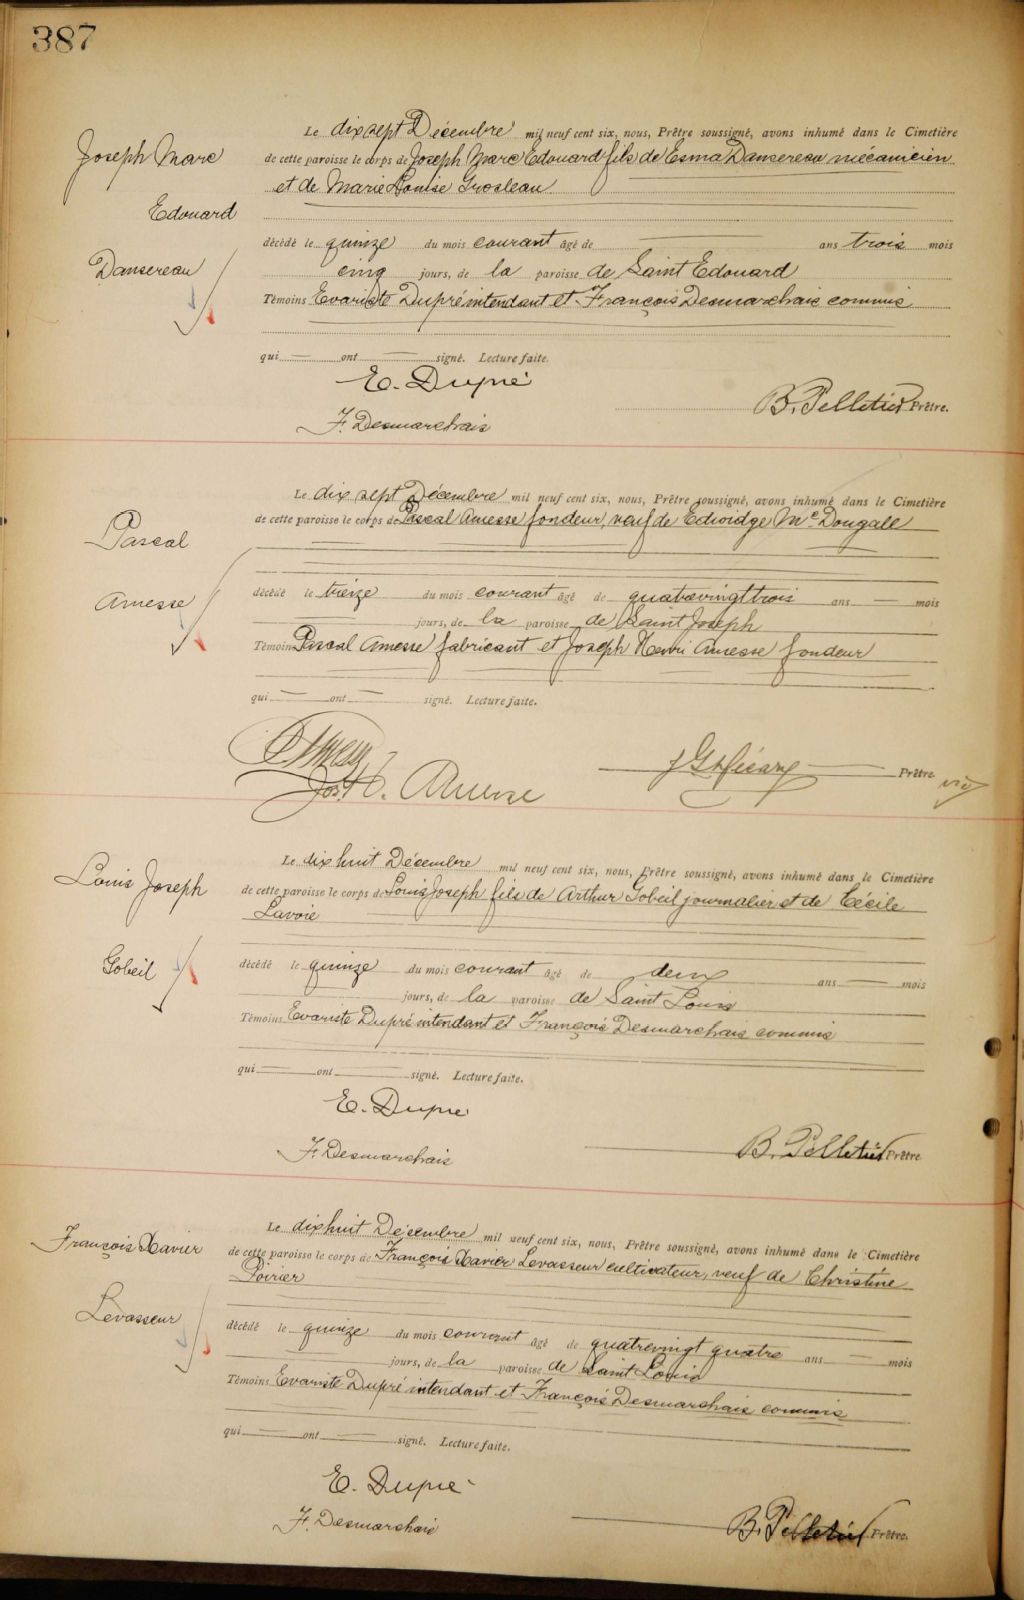 387
Le dix sept Décembre mil neuf cent six, nous, Prêtre soussigné, avons inhumé dans le Cimetière
Joseph Marc
de cette paroisse le corps de Joseph Marc Edouard fils de Esma Dansereau mécanicien
et de Marie Louise Grosleau
Edouard
décédé le quinze du mois courant âgé de ans trois mois
Dansereau
cinq jours, de la paroisse de Saint Edouard
Témoins Evariste Dupré intendant et François Desmarchais commis
qui ont signé. Lecture faite.
E. Dupré
B. Pelletier Prêtre.
F. Desmarchais
Le dix sept Décembre mil neuf cent six, nous, Prêtre soussigné, avons inhumé dans le Cimetière
de cette paroisse le corps de Pascal Amesse fondeur, veuf de Edwidge Mc Dougall
Pascal
Amesse
décédé le treize du mois courant âgé de quatrevingt trois ans mois
jours, de la paroisse de Saint Joseph
Témoins Pascal Amesse fabricant et Joseph Henri Amesse fondeur
qui ont signé. Lecture faite.
P Amesse
Prêtre
Jos. H. Amesse
Le dix huit Décembre mil neuf cent six, nous, Prêtre soussigné, avons inhumé dans le Cimetière
Louis Joseph
de cette paroisse le corps de Louis Joseph fils de Arthur Gobeil journalier et de Cécile
Lavoie
Gobeil
décédé le quinze du mois courant âgé de deux ans mois
jours, de la paroisse de Saint Louis
Témoins Evariste Dupré intendant et François Desmarchais commis
qui ont signé. Lecture faite.
E. Dupré
B. Pelletier Prêtre
F. Desmarchais
Le dix huit Décembre mil neuf cent six, nous, Prêtre soussigné, avons inhumé dans le Cimetière
François Xavier
de cette paroisse le corps de François Xavier Levasseur cultivateur, veuf de Christine
Poirier
Levasseur
décédé le quinze du mois courant âgé de quatrevingt quatre ans mois
jours, de la paroisse de Saint Louis
Témoins Evariste Dupré intendant et François Desmarchais commis
qui ont signé. Lecture faite.
E. Dupré
F. Desmarchais
B. Pelletier Prêtre.